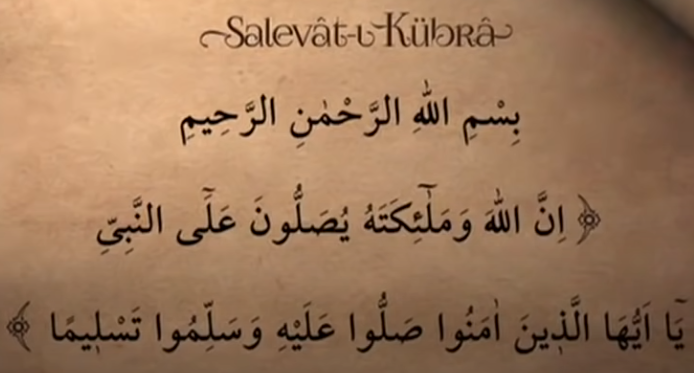 Salevât-ı Kübrâ
بِسْمِ اللّٰهِ الرَّحْمٰنِ الرَّحِيمِ
﴿ اِنَّ اللّٰهَ وَمَلٰٓئِكَتَهُ يُصَلُّونَ عَلَى النَّبِيِّ
يَٓا اَيُّهَا الَّذِينَ اٰمَنُوا صَلُّوا عَلَيْهِ وَسَلِّمُوا تَسْلِيمًا ﴾